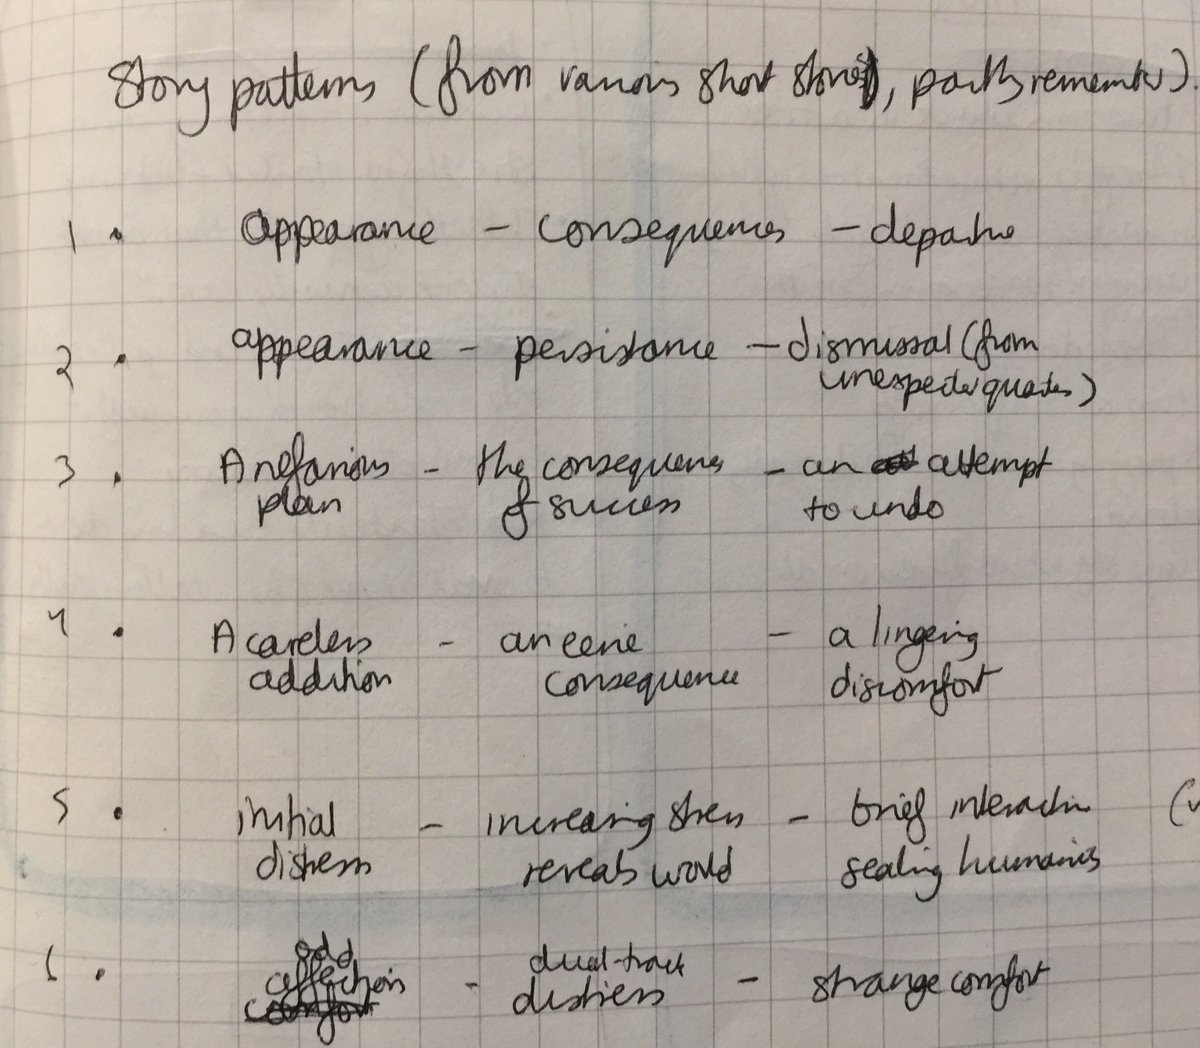 Story patterns (from various short stories, partly remembered).
1. appearance - consequences - departure
2. appearance - persistance - dismissal (from
unexpected quarters)
3. A nefarious - the consequences - an attempt
plan of success to undo
4. A careless - an eerie - a lingering
addition consequence discomfort
5. initial - increasing stress - brief interaction
distress reveals world sealing humanity's
odd dual-track
6. affection - distress - strange comfort
comfort